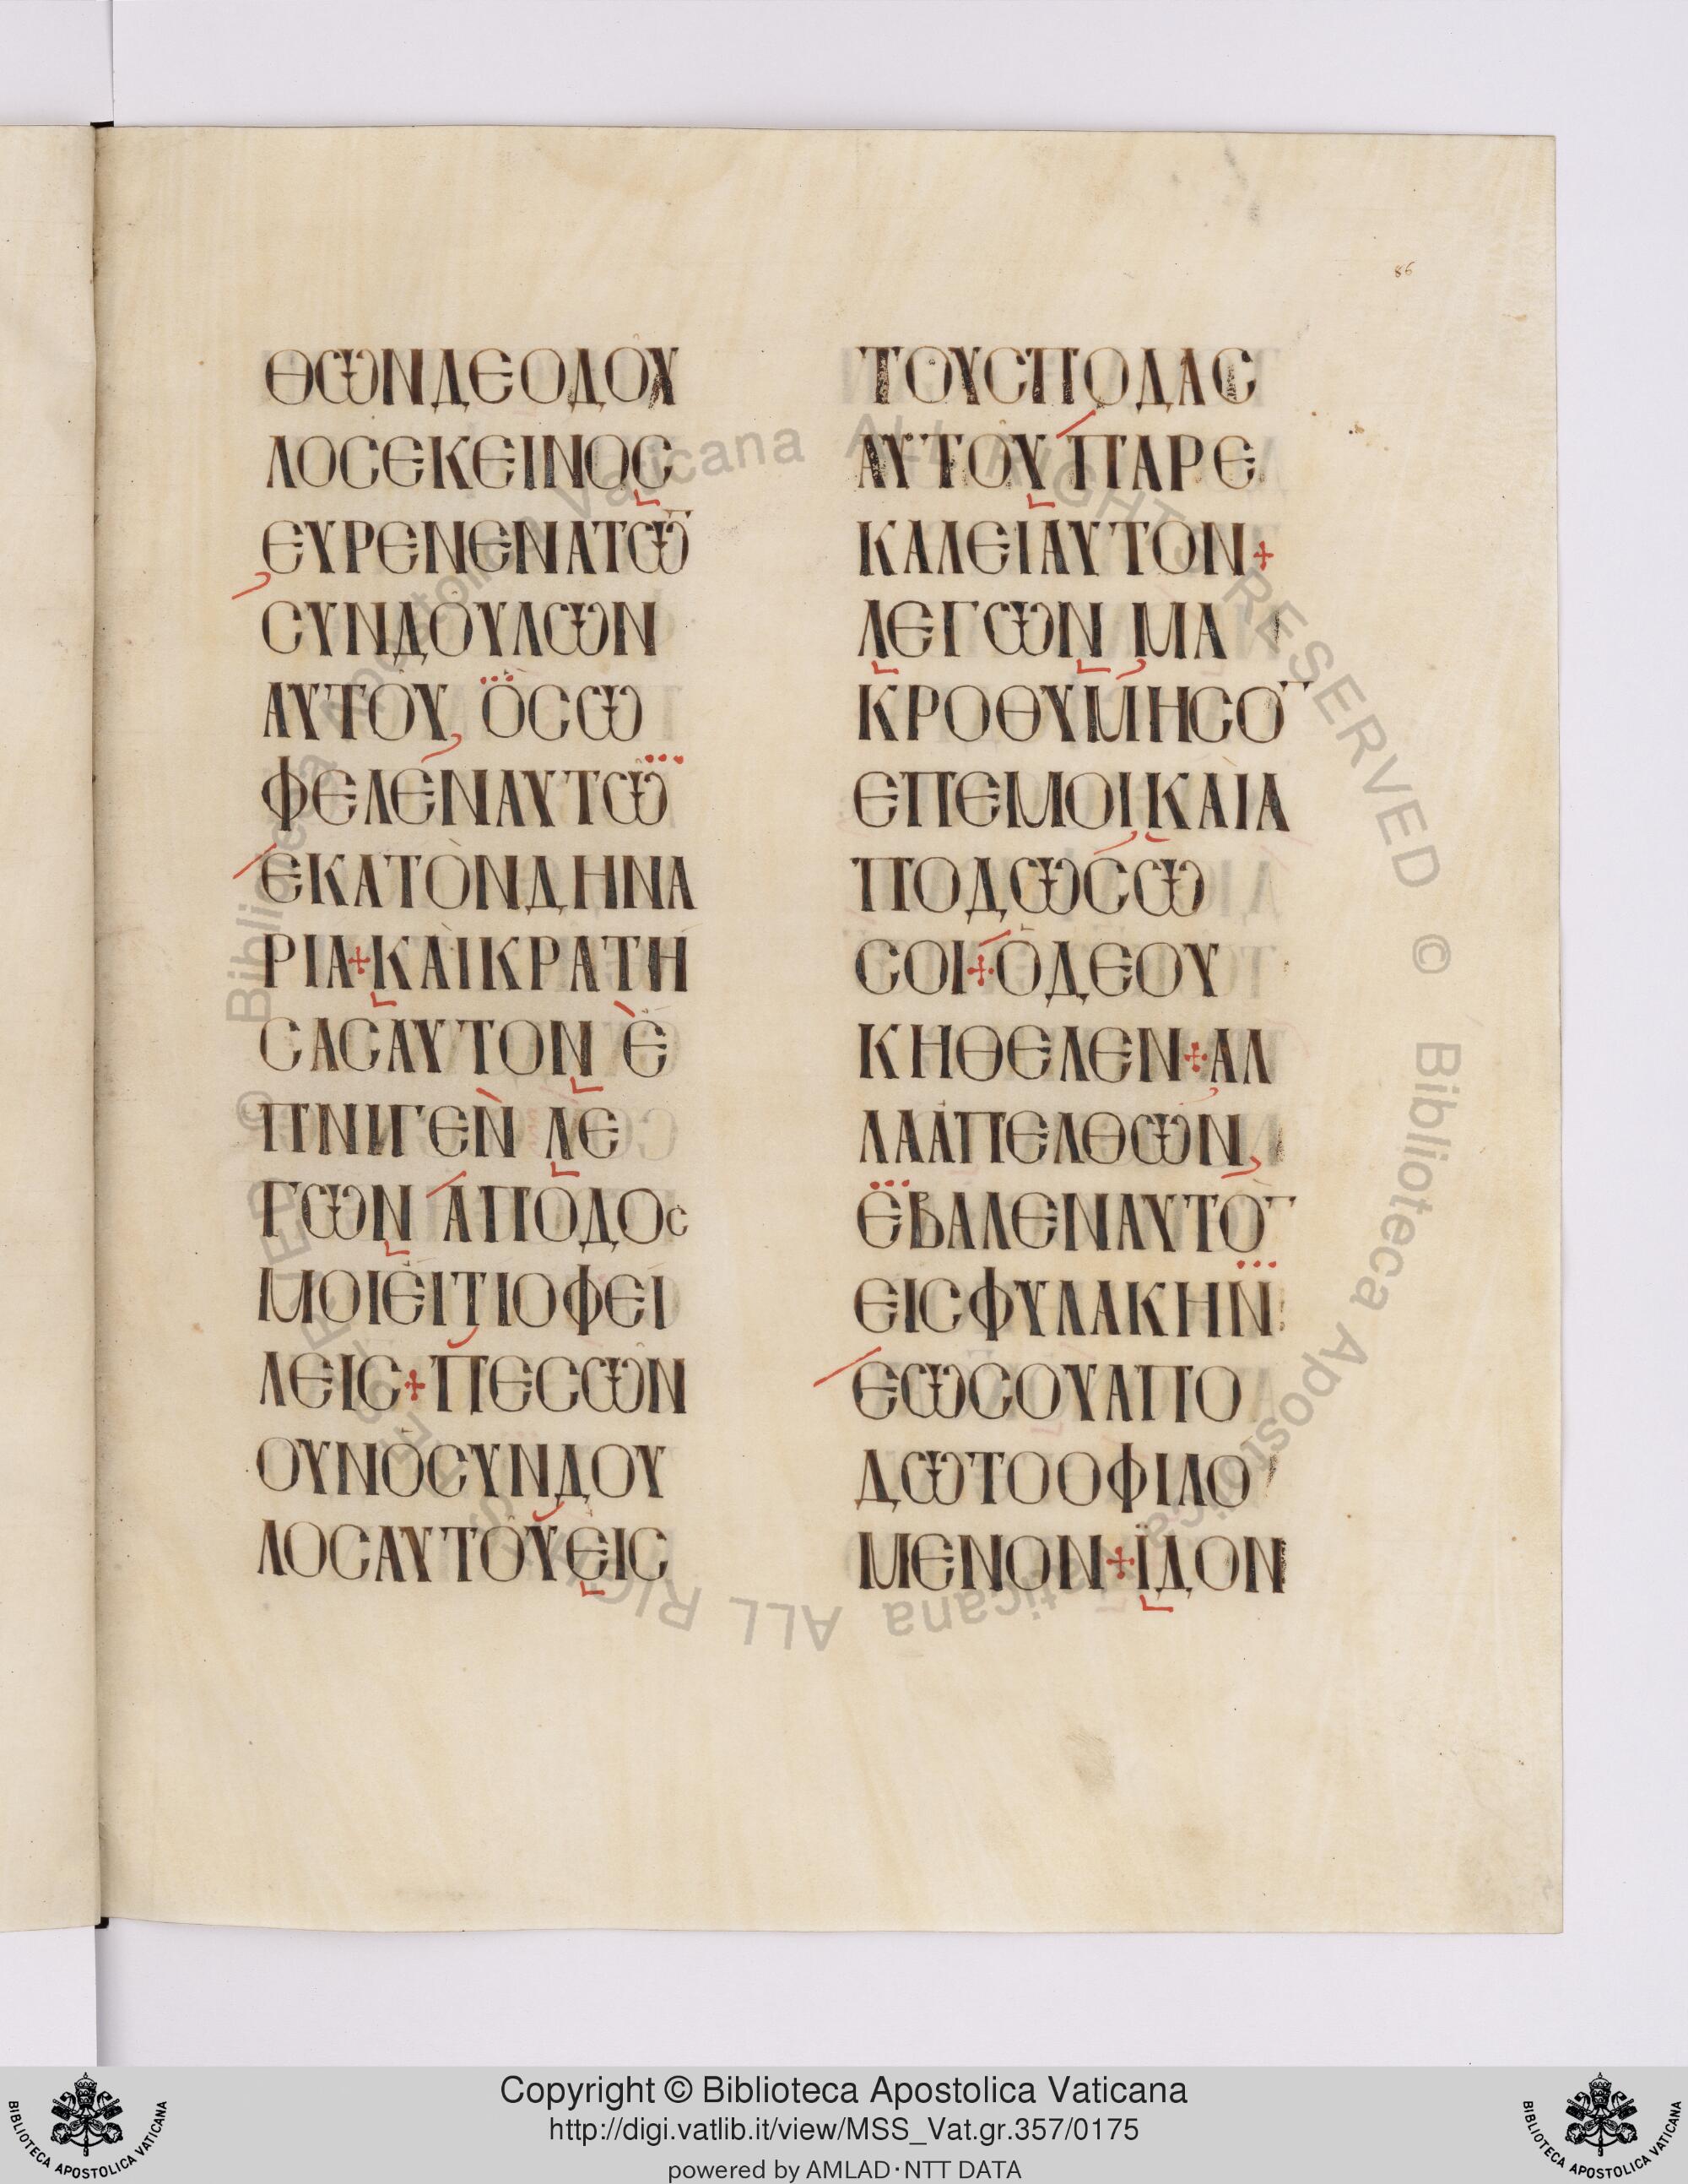 86
ΘΩΝΔΕΟΔΟΥ
ΛΟϹΕΚΕΙΝΟϹ
ΕΥΡΕΝΕΝΑΤΩ̅
ϹΥΝΔΟΥΛΩΝ
ΑΥΤΟΥ ΟϹΩ
ΦΕΛΕΝΑΥΤΩ
ΕΚΑΤΟΝΔΗΝΑ
ΡΙΑ+ΚΑΙΚΡΑΤΗ
ϹΑϹΑΥΤΟΝ Ε
ΠΝΙΓΕΝ ΛΕ
ΓΩΝ ΑΠΟΔΟϹ
ΜΟΙΕΙΤΙΟΦΕΙ
ΛΕΙϹ+ΠΕϹΩΝ
ΟΥΝΟϹΥΝΔΟΥ
ΛΟϹΑΥΤΟΥΕΙϹ
ΤΟΥϹΠΟΔΑϹ
ΑΥΤΟΥ ΠΑΡΕ
ΚΑΛΕΙΑΥΤΟΝ+
ΛΕΓΩΝ ΜΑ
ΚΡΟΘΥΜΗϹΟ̅
ΕΠΕΜΟΙΚΑΙΑ
ΠΟΔΩϹΩ
ϹΟΙ+ΟΔΕΟΥ
ΚΗΘΕΛΕΝ+ΑΛ
ΛΑΑΠΕΛΘΩΝ
ΕΒΑΛΕΝΑΥΤΟ̅
ΕΙϹΦΥΛΑΚΗΝ
ΕΩϹΟΥΑΠΟ
ΔΩΤΟΟΦΙΛΟ
ΜΕΝΟΝ+ΪΔΟΝ
© Biblioteca Apostolica Vaticana ALL RIGHTS RESERVED © Biblioteca Apostolica Vaticana ALL RIGHTS RESERVED
Copyright © Biblioteca Apostolica Vaticana
http://digi.vatlib.it/view/MSS_Vat.gr.357/0175
powered by AMLAD·NTT DATA
BIBLIOTECA APOSTOLICA VATICANA
BIBLIOTECA APOSTOLICA VATICANA